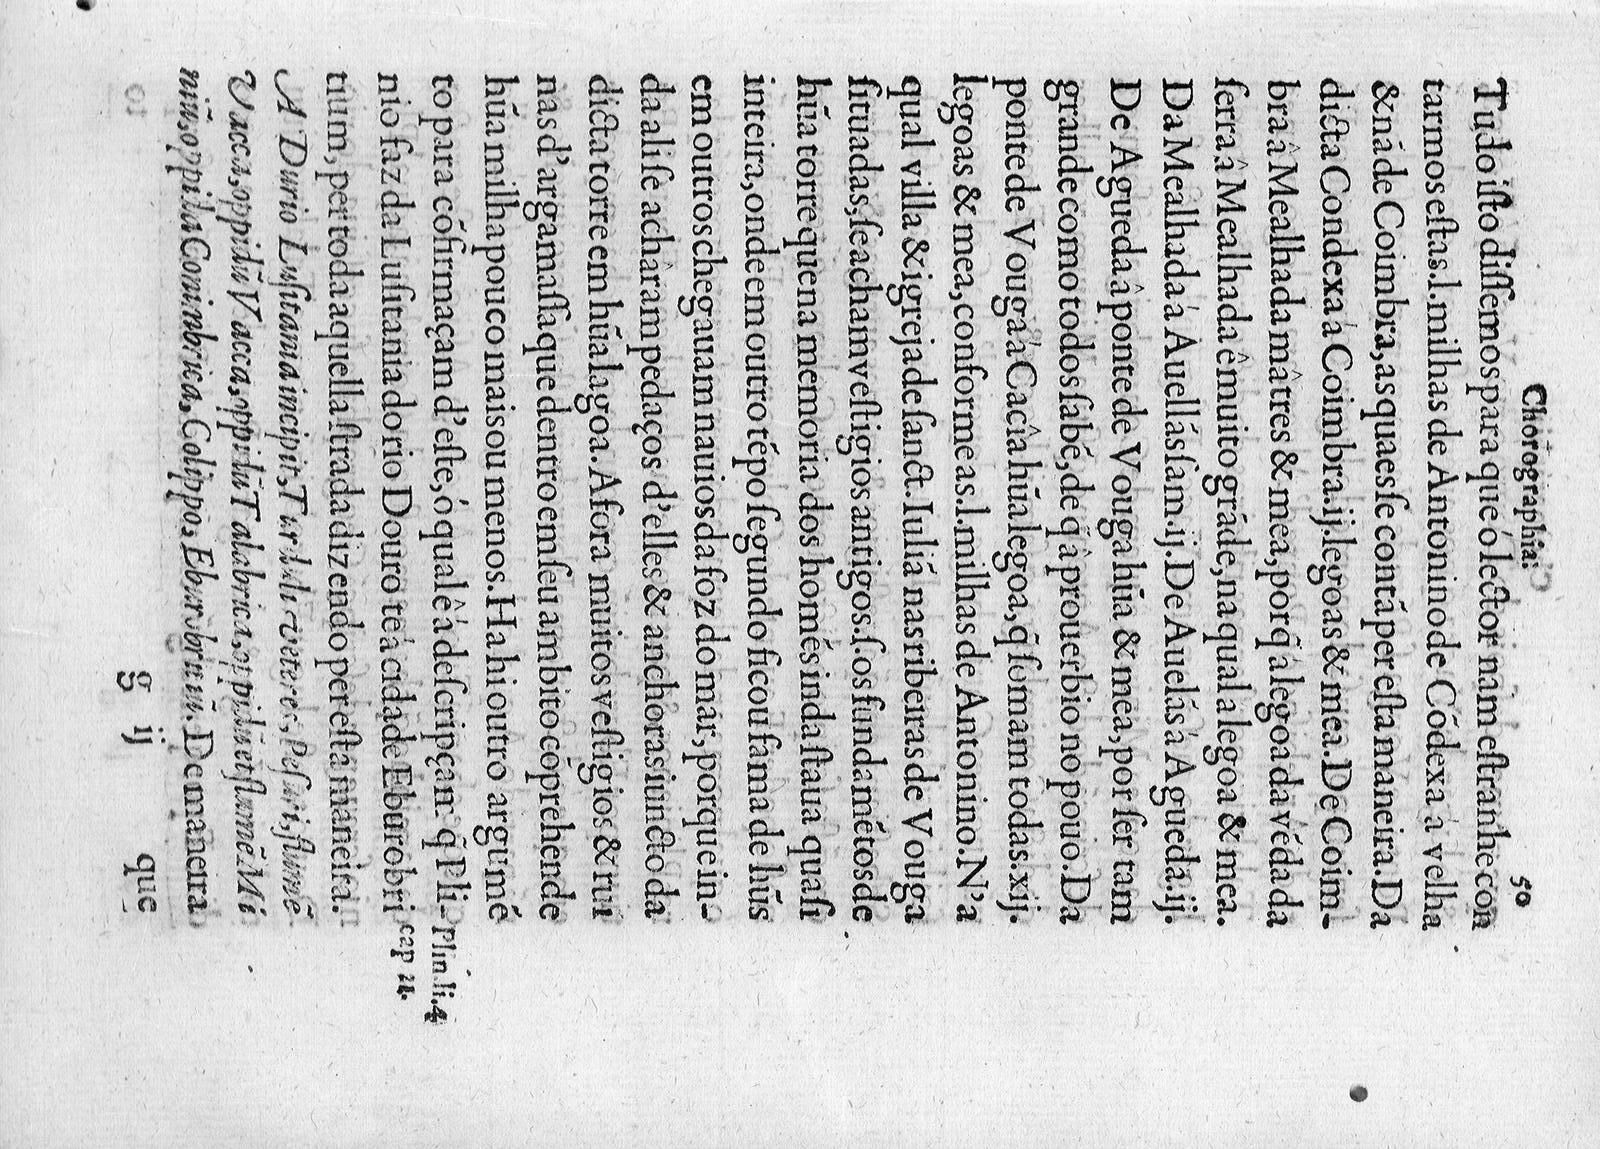 Chorographia. 50
Tudo iſto diſſemos para que ó leƈtor nam eſtranhe con
tarmos eſtas .l. milhas de Antonino de Cõdexa á velha
& nã de Coimbra, as quaes ſe contã per eſta maneira. Da
diƈta Condexa á Coimbra .ij. legoas & mea. De Coim-
bra â Mealhada mâtres & mea, porq̃ á legoa da vẽda da
ſerra â Mealhada ê muito grãde, na qual a legoa & mea.
Da Mealhada á Auellãs ſam .ij. De Auelãs á Agueda .ij.
De Agueda â ponte de Vouga hũa & mea, por ſer tam
grande como todos ſabẽ, de q̃ â prouerbio no pouo. Da
ponte de Vouga á Cacîa hũa legoa, q̃ ſomam todas .xij.
legoas & mea, conforme as .l. milhas de Antonino. N'a
qual villa & igreja de ſanƈt. Iuliã nas ribeiras de Vouga
ſituadas, ſe acham veſtigios antigos .ſ. os fundamẽtos de
hũa torre quena memoria dos homẽs inda ſtaua quaſi
inteira, onde em outro tẽpo ſegundo ficou fama de hũs
em outros chegauam nauios da foz do mar, porque in-
da ali ſe achâram pedaços d'elles & anchoras iunƈto da
diƈta torre em hũa lagoa. Afora muitos veſtigios & rui
nas d'argamaſſa que dentro em ſeu ambito cõprehende
hũa milha pouco mais ou menos. Ha hi outro argumẽ
to para cõfirmaçam d'eſte, ó qual ê á deſcripçam q̃ Pli-
Plin. li. 4.
cap 21.
nio faz da Luſitania do rio Douro té á cidade Eburobri
tium, per toda aquella ſtrada dizendo per eſta maneira.
A Durio Luſitania incipit, Turduli veteres, Peſuri, flumẽ
Vacca, oppidũ Vacca, oppidũ Talabrica, oppidũ et flumẽ Mi
niũ, oppida Conimbrica, Colippo, Eburobriciũ. De maneira
g ij que